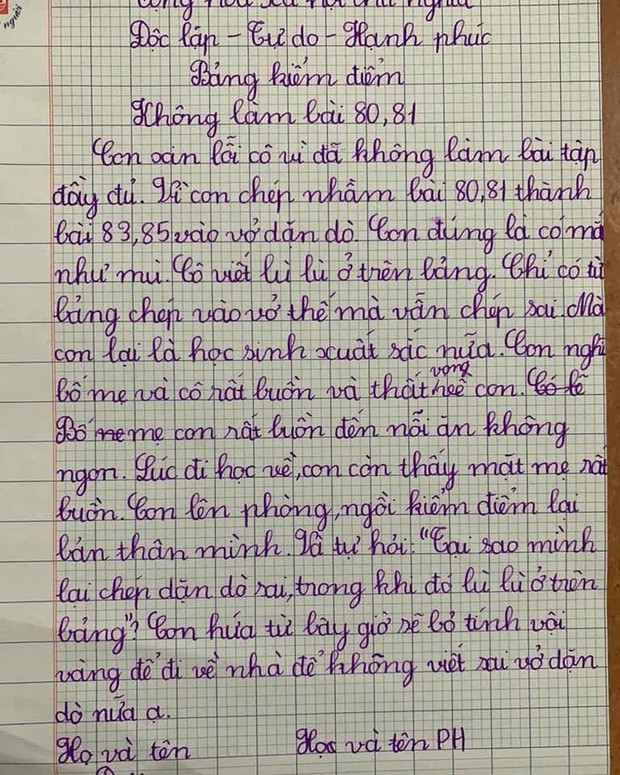 người
Cộng hòa xã hội chủ nghĩa
Độc lập - Tự do - Hạnh phúc
Bảng kiểm điểm
Không làm bài 80,81
Con oán lỗi cô vì đã không làm bài tập
đầy đủ. Vì con chép nhầm bài 80,81 thành
bài 83,85 vào vở dặn dò. Con đúng là có mắ
như mù. Cô viết lù lù ở trên bảng. Chỉ có từ
bảng chép vào vở thế mà vẫn chép sai. Mà
con lại là học sinh xuất sắc nữa. Con nghĩ
bố mẹ và cô rất buồn và thất vọng về con. Có lẽ
Bố me mẹ con rất buồn đến nỗi ăn không
ngon. Lúc đi học về, con còn thấy mặt mẹ rất
buồn. Con lên phòng, ngồi kiểm điểm lại
bản thân mình. Và tự hỏi: "Tại sao mình
lại chép dặn dò sai, trong khi đó lù lù ở trên
bảng"? Con hứa từ bây giờ sẽ bỏ tính vội
vàng để đi về nhà để không viết sai vở dặn
dò nữa ạ.
Họ và tên Họ và tên PH